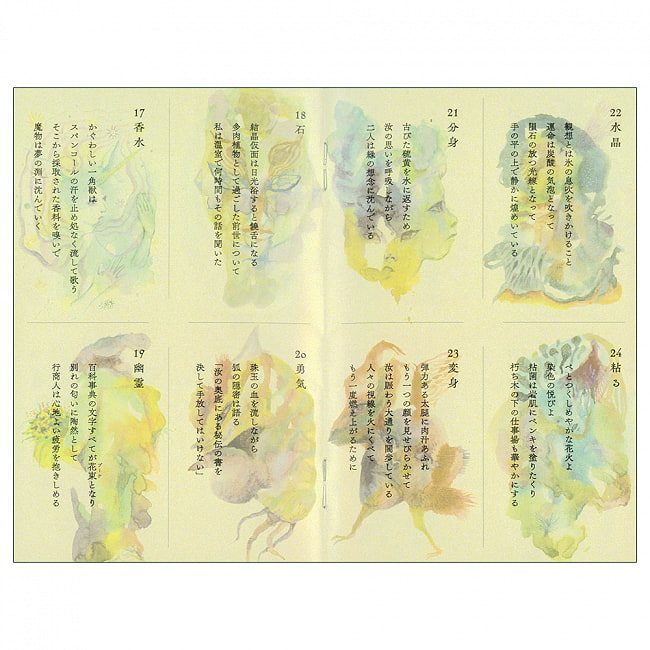 17 香水
かぐわしい一角獣は
スパンコールの汗を止め処なく流して歌う
そこから採取された香料を嗅いで
魔物は夢の淵に沈んでいく
18 石
結晶仮面は日光浴すると饒舌になる
多肉植物として過ごした前世について
私は温室で何時間もその話を聞いた
19 幽霊
百科事典の文字すべてが花束となり
ブーケ
別れの匂いに陶然として
行商人は心地よい疲労を抱きしめる
20 勇気
珠玉の血を流しながら
狐の隠密は語る
「汝の奥底にある秘伝の書を
決して手放してはいけない」
21 分身
古びた硫黄を水に返すため
汝の思いを呼吸しながら
二人は緑の想念に沈んでいる
22 水晶
観想とは水の息吹を吹きかけること
運命は炭酸の気泡となって
隕石の放つ光線となって
手の平の上で静かに煌めいている
23 変身
弾力ある太腿に肉汁あふれ
もう一つの顔を見せびらかせて
汝は賑わう大通りを闊歩している
人々の視線を火にくべて
もう一度燃え上がるために
24 粘る
べとつくしめやかな花火よ
染色の悦びよ
粘菌は岩肌にペンキを塗りたくり
朽ち木の下の仕事場も華やかにする